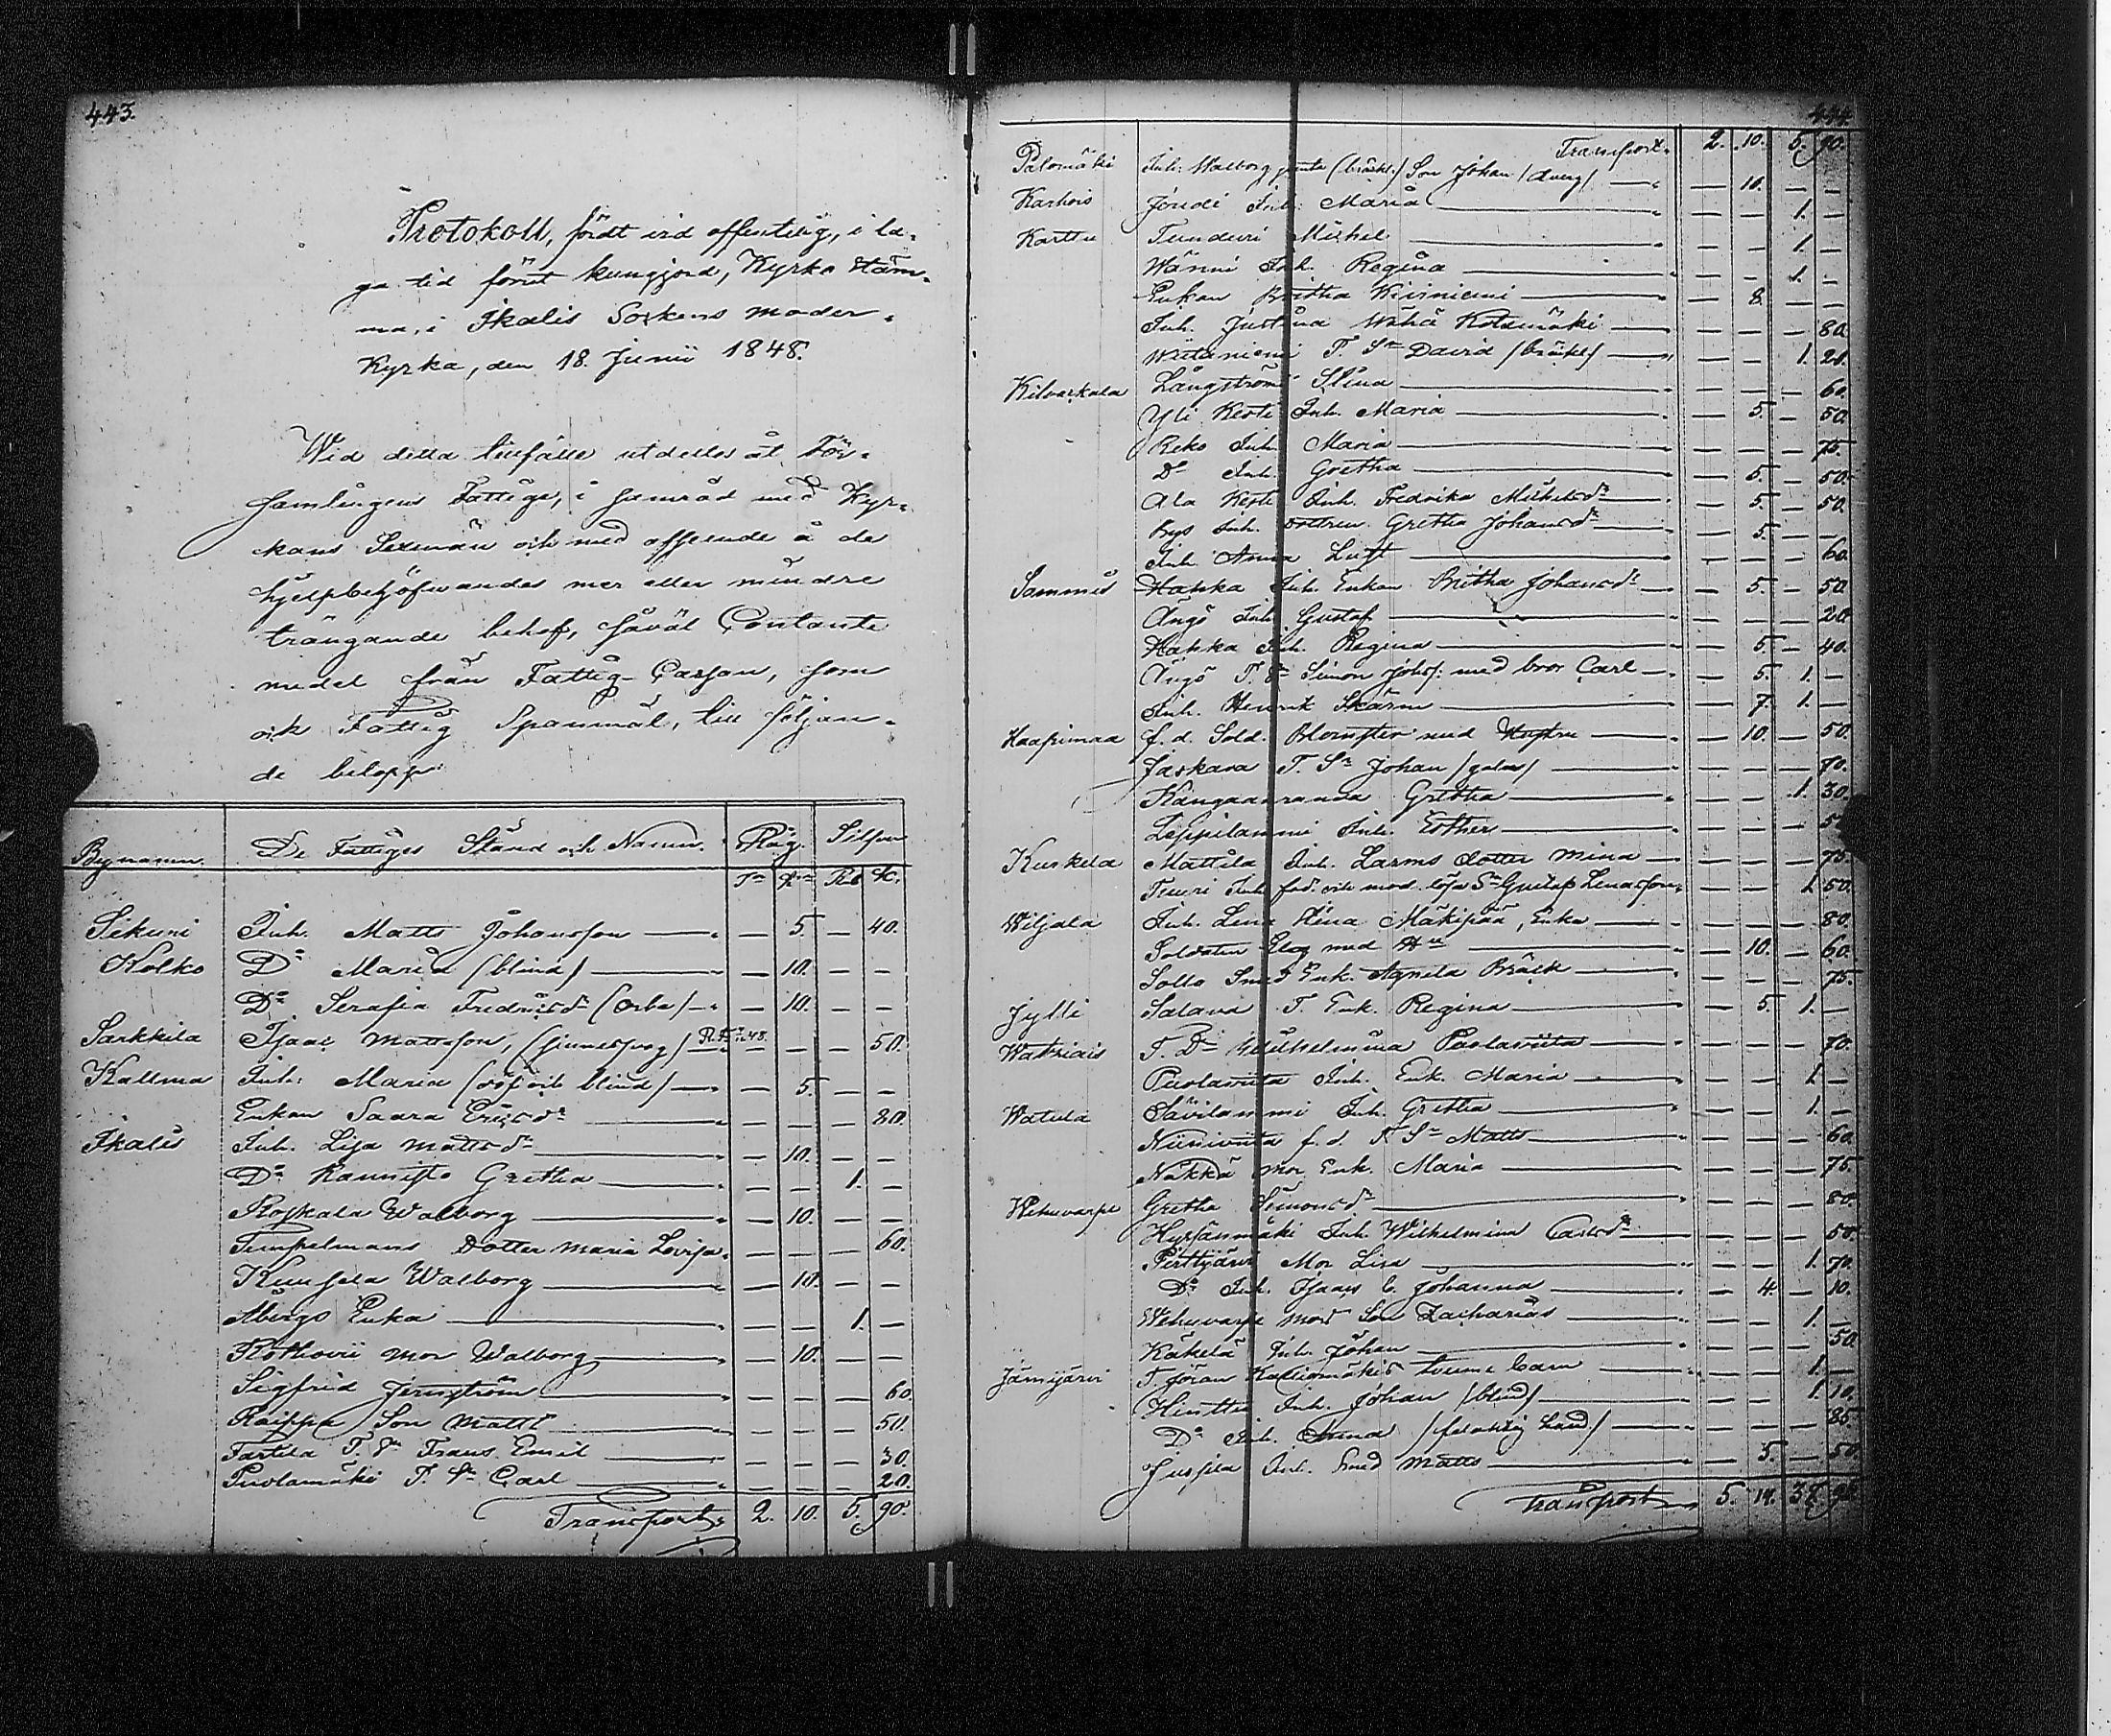 443.
Protokoll, fördt vid offentelig, i la-
ga tid förut kungjord, Kyrko Stäm-
ma, i Ikalis Sockens moder-
Kyrka, den 18. Junii 1848.
Wid detta tillfälle utdeltes åt För-
samlingens Fattige, i samråd med Kyr-
kans Sexmän och med afseende å de
hjelpbehöfwandes mer eller mindre
trängande behof, såväl Contante
medel från Fattig-Cassan, som
ock Fattig Spanmål, till följan-
de belopp:
Bynamn. De Fattiges Stånd och Namn. Råg. Silfver
Tr Kr Rub K.
Sikuri Inh. Matts Johansson — 5. — 40.
Kolko Do Maria (blind) — 10. — —
Do Serafia Fredricsdr (Orbo) — 10. — —
Sarkkila Isaac Mattsson, (sinnessvag) — — — 50.
Kallma Inh: Maria (och blind) — 5. — —
Enkan Saara Ericsdr — — — 80.
Ikalis Inh. Lisa Mattsdr — 10. — —
Do Kannisto Gretha — — 1. —
Koskala Walborg — 10. — —
Timpelmans Dotter Maria Lovisa — — — 60.
Kuusela Walborg — 10. — —
Åbergs Enka — — 1. —
Rothovi mor Walborg — 10. — —
Sigfrid Jernström — — — 60
Raippa Son Matts — — — 50.
Tartila T. Sn Frans Emil — — — 30.
Puolamäki T. Sn Carl — — — 20.
Transport 2. 10. 5. 90.
444
Transport. 2. 10. 5. 90.
Palomäki Inh: Walborg jemte (bräckl.) Son Johan (dverg) — 10. — —
Karhois Jöudi Inh. Maria — — 1. —
Karttu Tunduri Michel — — 1. —
Wänni Inh. Regina — — 1. —
Enkan Britha Kivniemi — 8. — —
Inh. Justina Wähä Kotamäki — — — 80.
Wiitaniemi T. Sn David (bräckl) — — 1. 20.
Kilvakkala Långström Stina — — — 60.
Yli Kesti Inh. Maria — 5. — 50.
Reko Inh. Maria — — — 75.
Do Inh. Gretha — 5. — 50.
Ala Kesti Inh. Fredrika Michelsdr — 5. — 50.
Rys Inh. dottren Gretha Johansdr — 5. — —
Inh. Anna Lust — — — 60.
Sammis Hakka Inh. Enkan Britha Johansdr — 5. — 50.
Ängö Inh. Gustaf — — — 20
Hakka Inh. Regina — 5. — 40.
Ängö T. Sn Simon Johs: med bror Carl — 5. 1. —
Inh. Henrik Skarm — 7. 1. —
Haapimaa f. d. Sold. Blomster med Hustru — 10. — 50.
Jaskara T. Sn Johan (galen) — — — 70.
Kangaanranda Gretha — — 1. 30.
Leppilammi Inh. Esther — — —
Kuskela Mattila Inh. Larsms dotter Mina — — — 75.
Tuuri Inh. fad. och mod. lösa Sn Gustaf Lenasson — — 1. 50.
Wiljala Inh. Lena Stina Mäkipää, Enka — — — 80.
Soldaten Elog med Hu — 10. — 60.
Sollo Smed Enk. Agneta Bräck — — — 75.
Jylli Salava T. Enk. Regina — 5. 1. —
Watsiais T. Dr Wilhelmina Paolaviita — — — 70.
Puolaviita Inh. Enk. Maria — — 1. —
Watula Savilammi Inh. Gretha — — 1. —
Niinivuta f. d. T. Sn Matts — — — 60.
Näkkä mor Enk. Maria — — — 75.
Wehuvarpe Gretha Simonsdr — — — 80.
Hyrsänmäki Inh. Wilhelmina Carlsdr — — — 50.
Perttyjärvi Mor Lisa — — 1. 70.
Do Inh. Isaacs E. Johanna — 4. — 10.
Wehuvarpe mors Son Zacharias — — 1. —
Käkelä Inh. Johan — — — 50.
Jämijärvi T. Jöran Kalliomäkis tvenne barn — — 1. —
Hinttu Inh. Johan (blind) — — 1. 10.
Do Inh. Anna (felaktig hand) — — — 85.
Jussila Inh. Smed Matts — 5. — 50.
Transport 5. 14. 37.